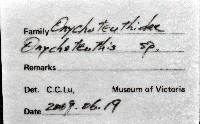 Family Onychoteuthidae
Onychoteuthis sp.
Remarks
Det. C.C.Lu, Museum of Victoria
Date 2009.06.19